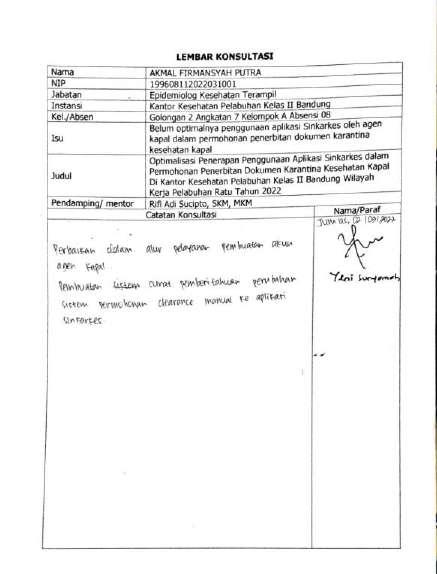 LEMBAR KONSULTASI
Nama AKMAL FIRMANSYAH PUTRA
NIP 199608112022031001
Jabatan Epidemiolog Kesehatan Terampil
Instansi Kantor Kesehatan Pelabuhan Kelas II Bandung
Kel./Absen Golongan 2 Angkatan 7 Kelompok A Absensi 08
Isu Belum optimalnya penggunaan aplikasi Sinkarkes oleh agen
kapal dalam permohonan penerbitan dokumen karantina
kesehatan kapal
Judul Optimalisasi Penerapan Penggunaan Aplikasi Sinkarkes dalam
Permohonan Penerbitan Dokumen Karantina Kesehatan Kapal
Di Kantor Kesehatan Pelabuhan Kelas II Bandung Wilayah
Kerja Pelabuhan Ratu Tahun 2022
Pendamping/ mentor Rifi Adi Sucipto, SKM, MKM
Catatan Konsultasi Nama/Paraf
Perbaikan didalam alur pelayanan pembuatan akun
agen kapal
Pembuatan sistem surat pemberitahuan perubahan
sistem permohonan clearance manual ke aplikasi
sinkarkes.